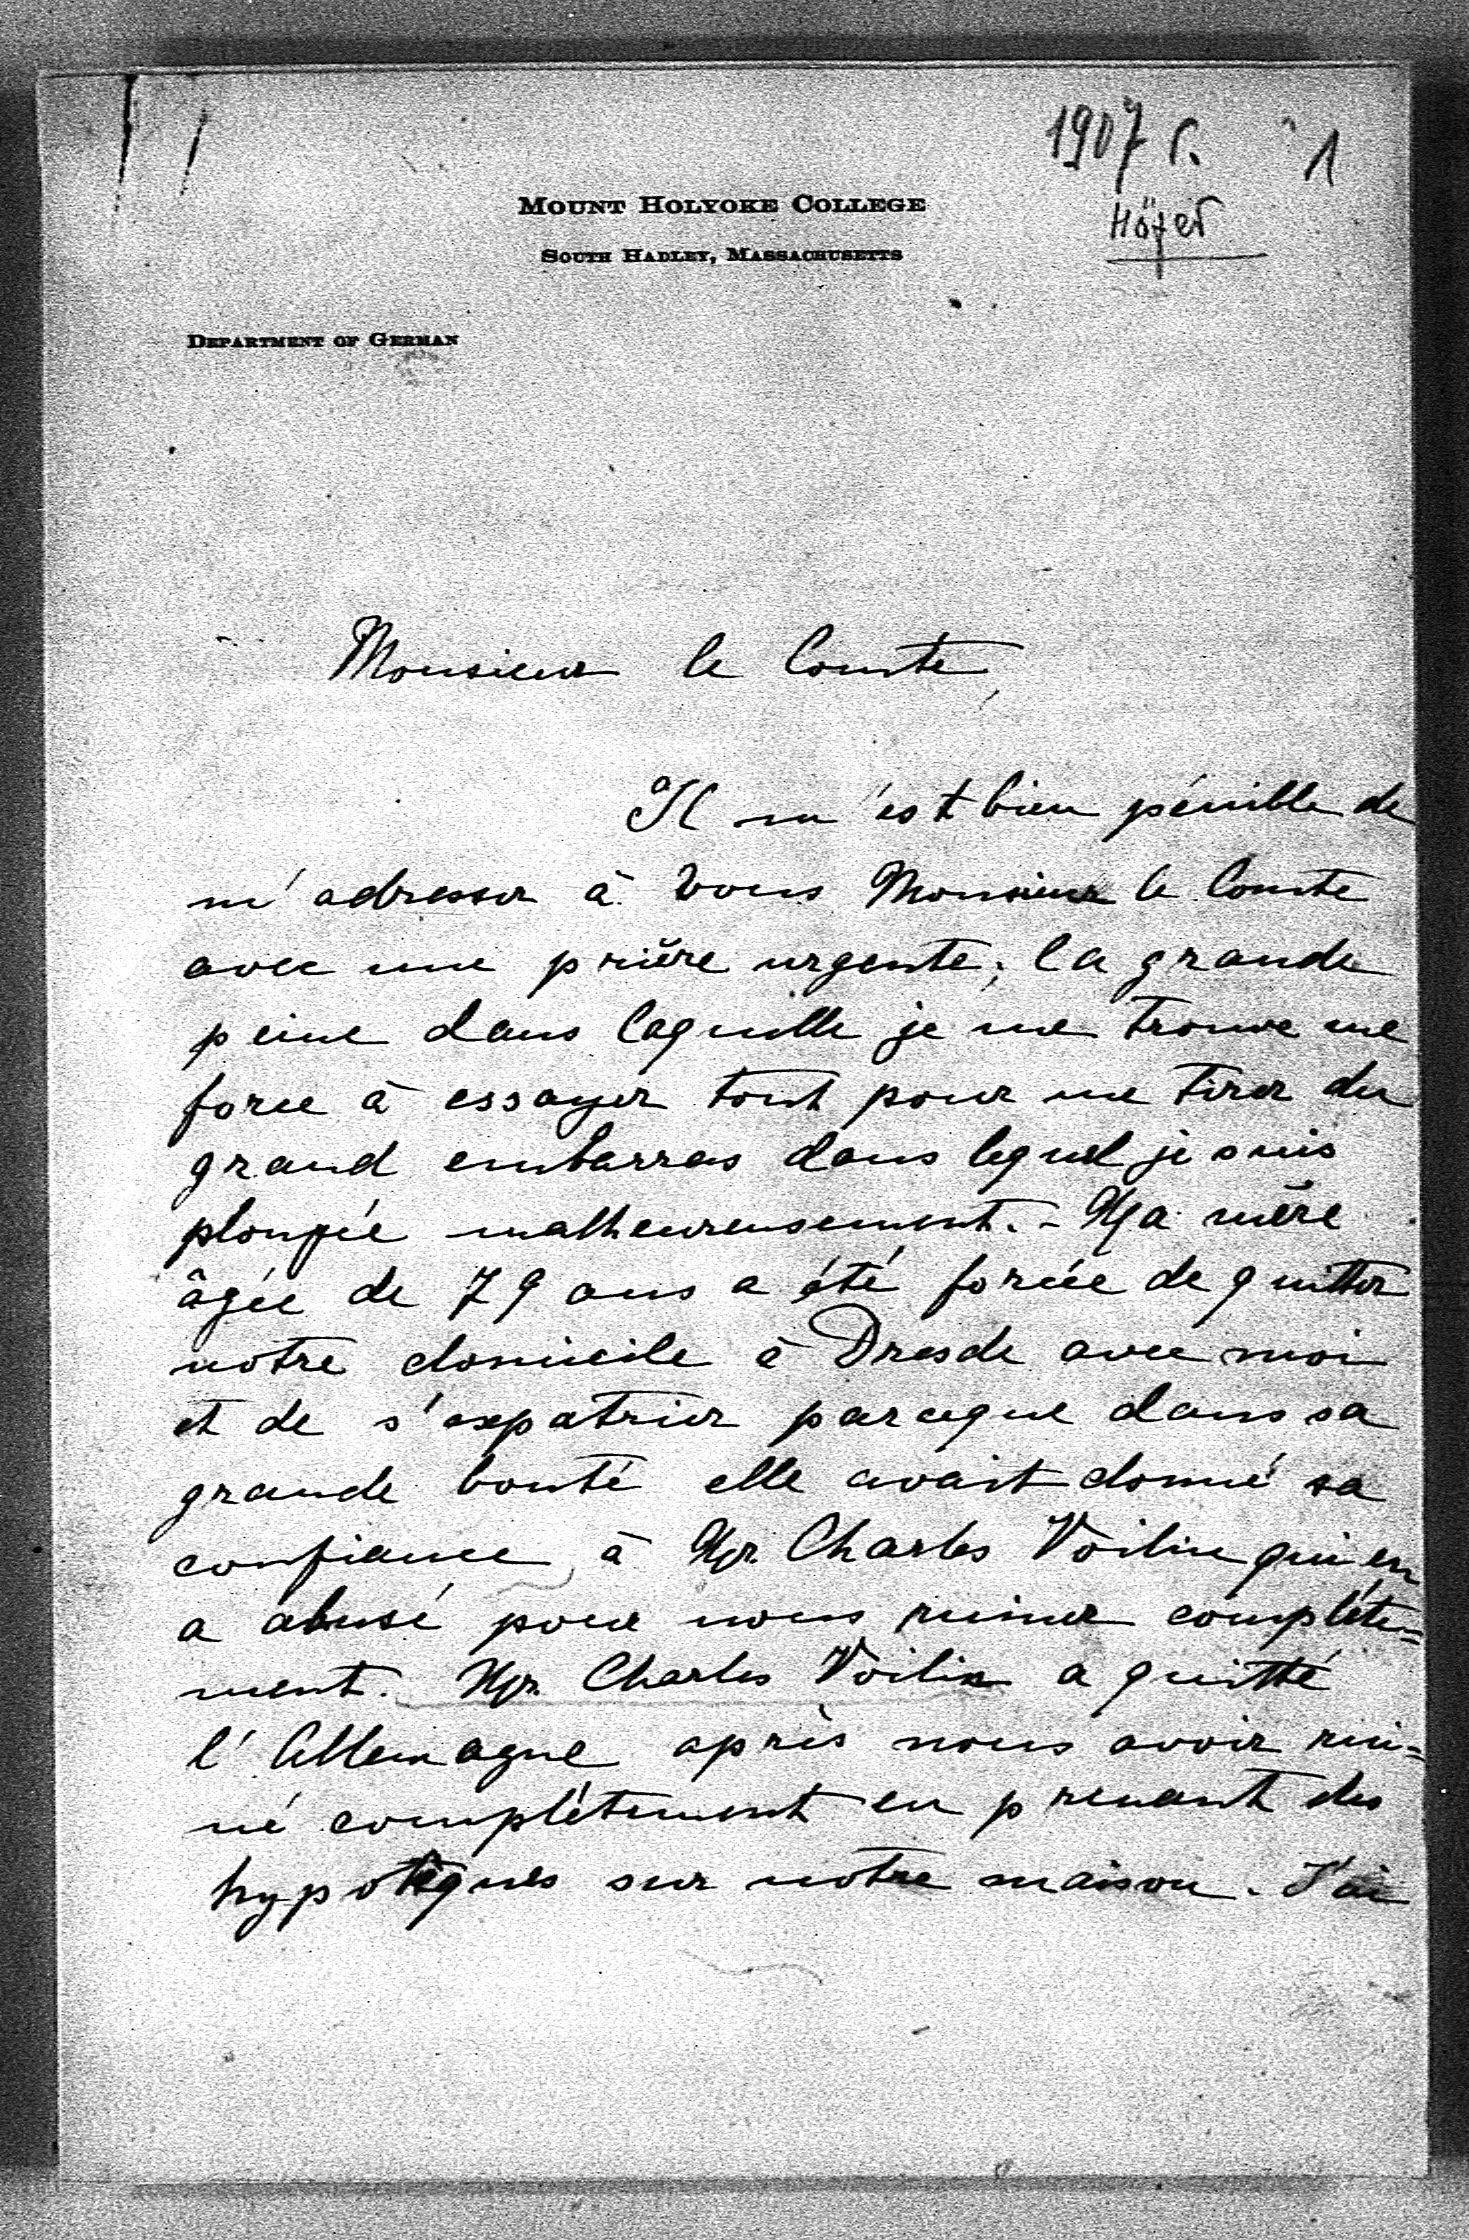 1907 г. 1
MOUNT HOLYOKE COLLEGE
Höfer
SOUTH HADLEY, MASSACHUSETTS
DEPARTMENT OF GERMAN
Monsieur le Comte,
Il m'est bien pénible de
m'adresser à Vous Monsieur le Comte
avec une prière urgente; la grande
peine dans laquelle je me trouve me
force à essayer tout pour me tirer du
grand embarras dans lequel je suis
plongée malheureusement. - Ma mère
âgée de 79 ans a été forcée de quitter
notre domicile à Dresde avec moi
et de s'expatrier parceque dans sa
grande bonté elle avait donné sa
confiance à Mr. Charles Voilin qui en
a abusé pour nous ruiner complète=
ment. Mr. Charles Voilin a quitté
l'Allemagne après nous avoir rui=
né complétement en prenant des
hypotèques sur notre maison. J'ai